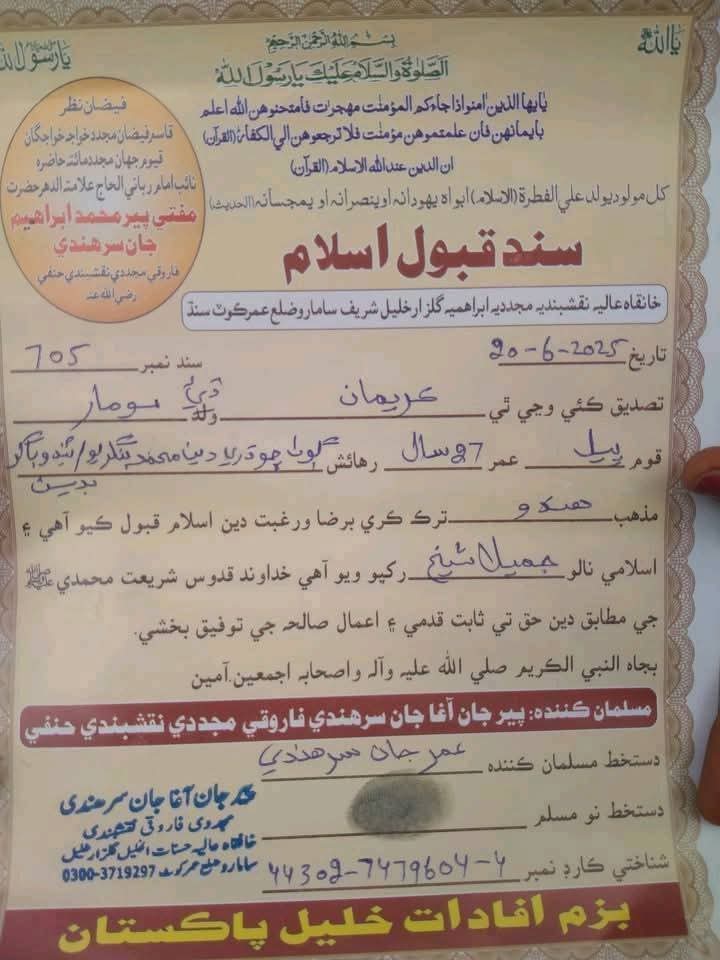 بِسْمِ اللهِ الرَّحْمٰنِ الرَّحِيْمِ
ياالله
يارسول الله
الصَّلٰوةُ وَالسَّلَامُ عَلَيْكَ يَارَسُوْلَ اللهِ
يايها الذين امنوا اذا جاءكم المؤمنت مهجرات فامتحنوهن الله اعلم
بايمانهن فان علمتموهن مؤمنت فلا ترجعوهن الي الكفار (القرآن)
ان الدين عند الله الاسلام (القرآن)
كل مولود يولد علي الفطرة (الاسلام) ابواه يهودانه او ينصرانه او يمجسانه (الحديث)
فيضان نظر
قاسم فيضان مجدد خواجه خواجگان
قيوم جهان مجدد مائته حاضره
نائب امام رباني الحاج علامة الدهر حضرت
مفتي پير محمد ابراهيم
جان سرهندي
فاروقي مجددي نقشبندي حنفي
رضي الله عنه
سند قبول اسلام
خانقاه عاليه نقشبنديه مجدديه ابراهميه گلزار خليل شريف سامارو ضلع عمرڪوٽ سنڌ
تاريخ 20-6-2025 سند نمبر 705
تصديق ڪئي وڃي ٿي ڪريمان ولد ڌيءُ سومار
قوم ڀيل عمر 27 سال رهائش ڳوٺ چوڌري دين محمد بنگريو/ٽنڊو باگو
بدين
مذهب هندو ترڪ ڪري برضا ورغبت دين اسلام قبول ڪيو آهي ۽
اسلامي نالو جميلا شيخ رکيو ويو آهي خداوند قدوس شريعت محمدي ﷺ
جي مطابق دين حق تي ثابت قدمي ۽ اعمال صالحه جي توفيق بخشي.
بجاه النبي الكريم صلي الله عليه وآله واصحابه اجمعين. آمين
مسلمان ڪننده: پير جان آغا جان سرهندي فاروقي مجددي نقشبندي حنفي
دستخط مسلمان ڪننده عمر جان سرهندي
دستخط نو مسلم
شناختي ڪارڊ نمبر 44302-7479604-4
پیر جان آغا جان سرهندی
مجددی فاروقی نقشبندی
خانقاہ عالیہ گلزار خلیل
سامارو ضلع عمرکوٹ 0300-3719297
بزم افادات خليل پاڪستان